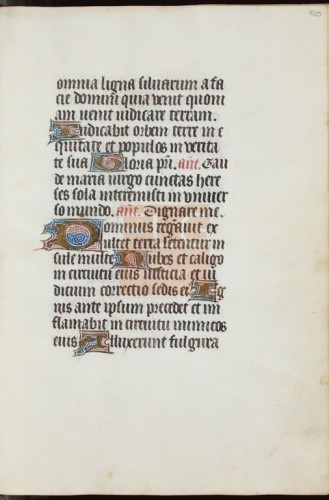 60
omnia ligna siluarum a fa
cie domini quia venit quoni
am uenit iudicare terram.
Iudicabit orbem terre in e
quitate et populos in verita
te sua Gloria pri. ant. Gau
de maria uirgo cunctas here
ses sola interemisti in vniuer
so mundo. ant. Dignare me.
Dominus regnauit ex
ultet terra letentur in
sule multe Nubes et caligo
in circuitu eius iusticia et iu
dicium correctio sedis ei Ig
nis ante ipsum precedet et in
flamabit in circuitu inimicos
eius Alluxerunt fulgura